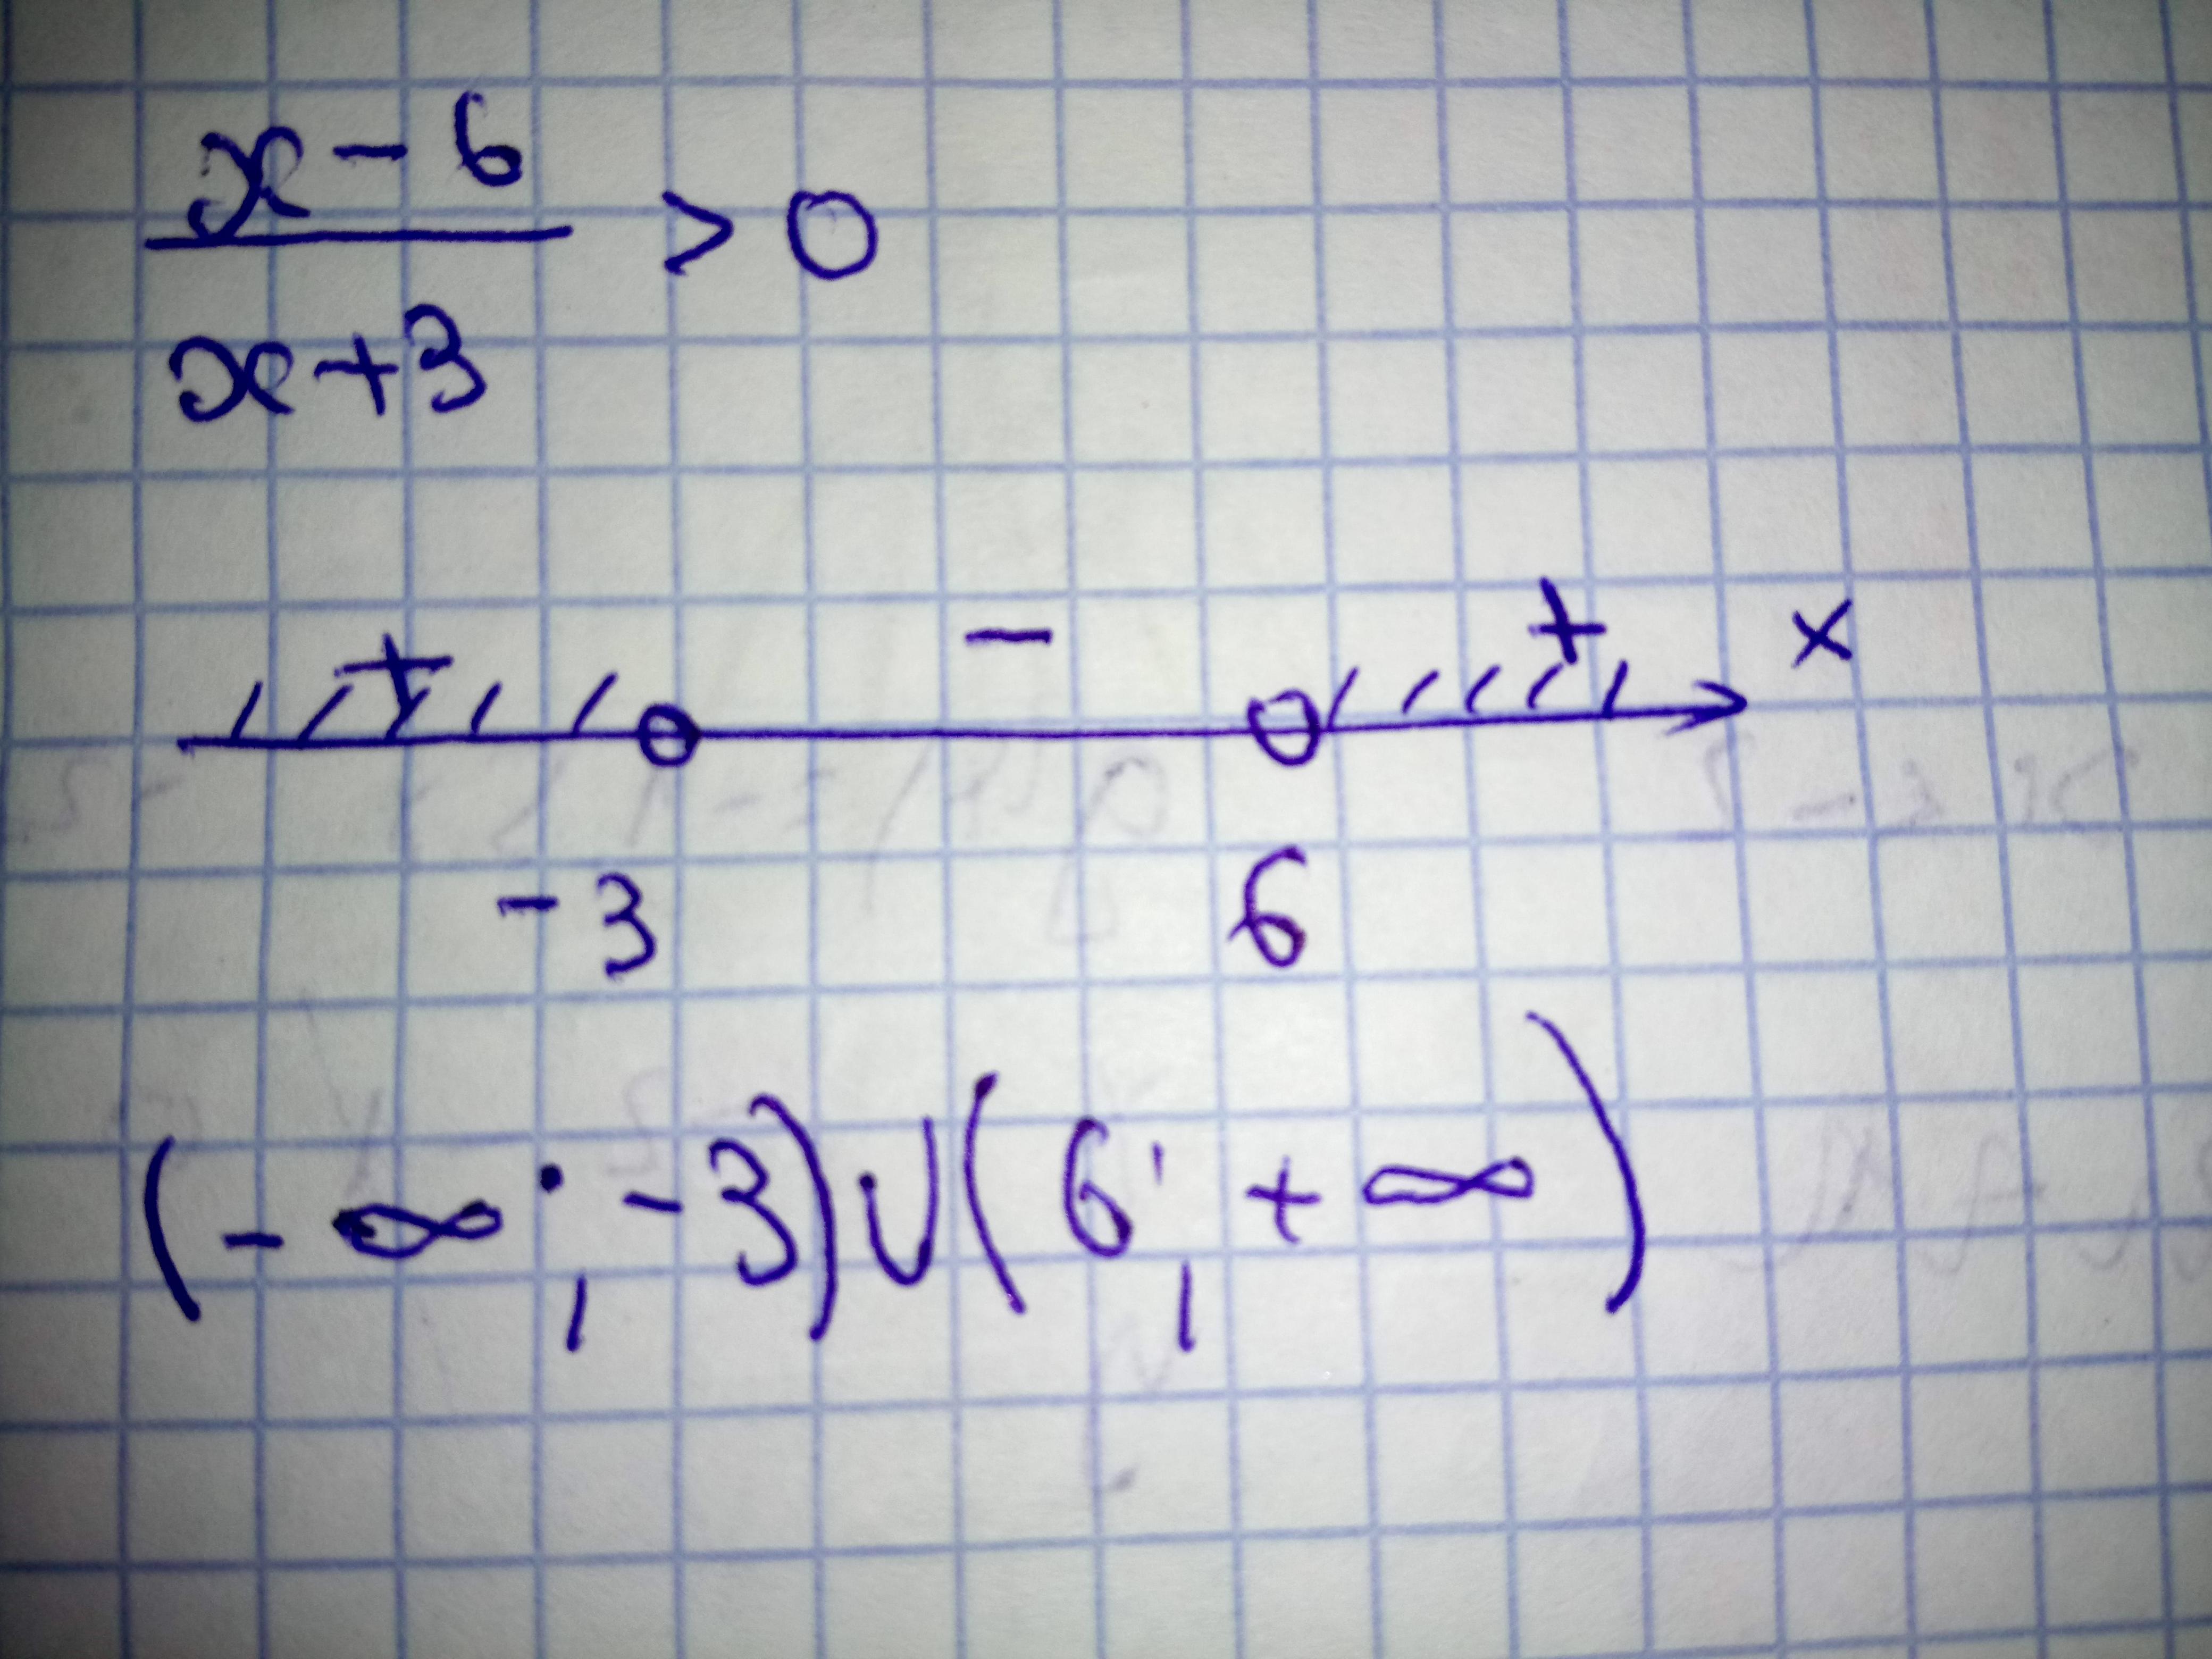 x - 6
> 0
x + 3
+ - + x
-3 6
(-∞; -3) ∪ (6; +∞)